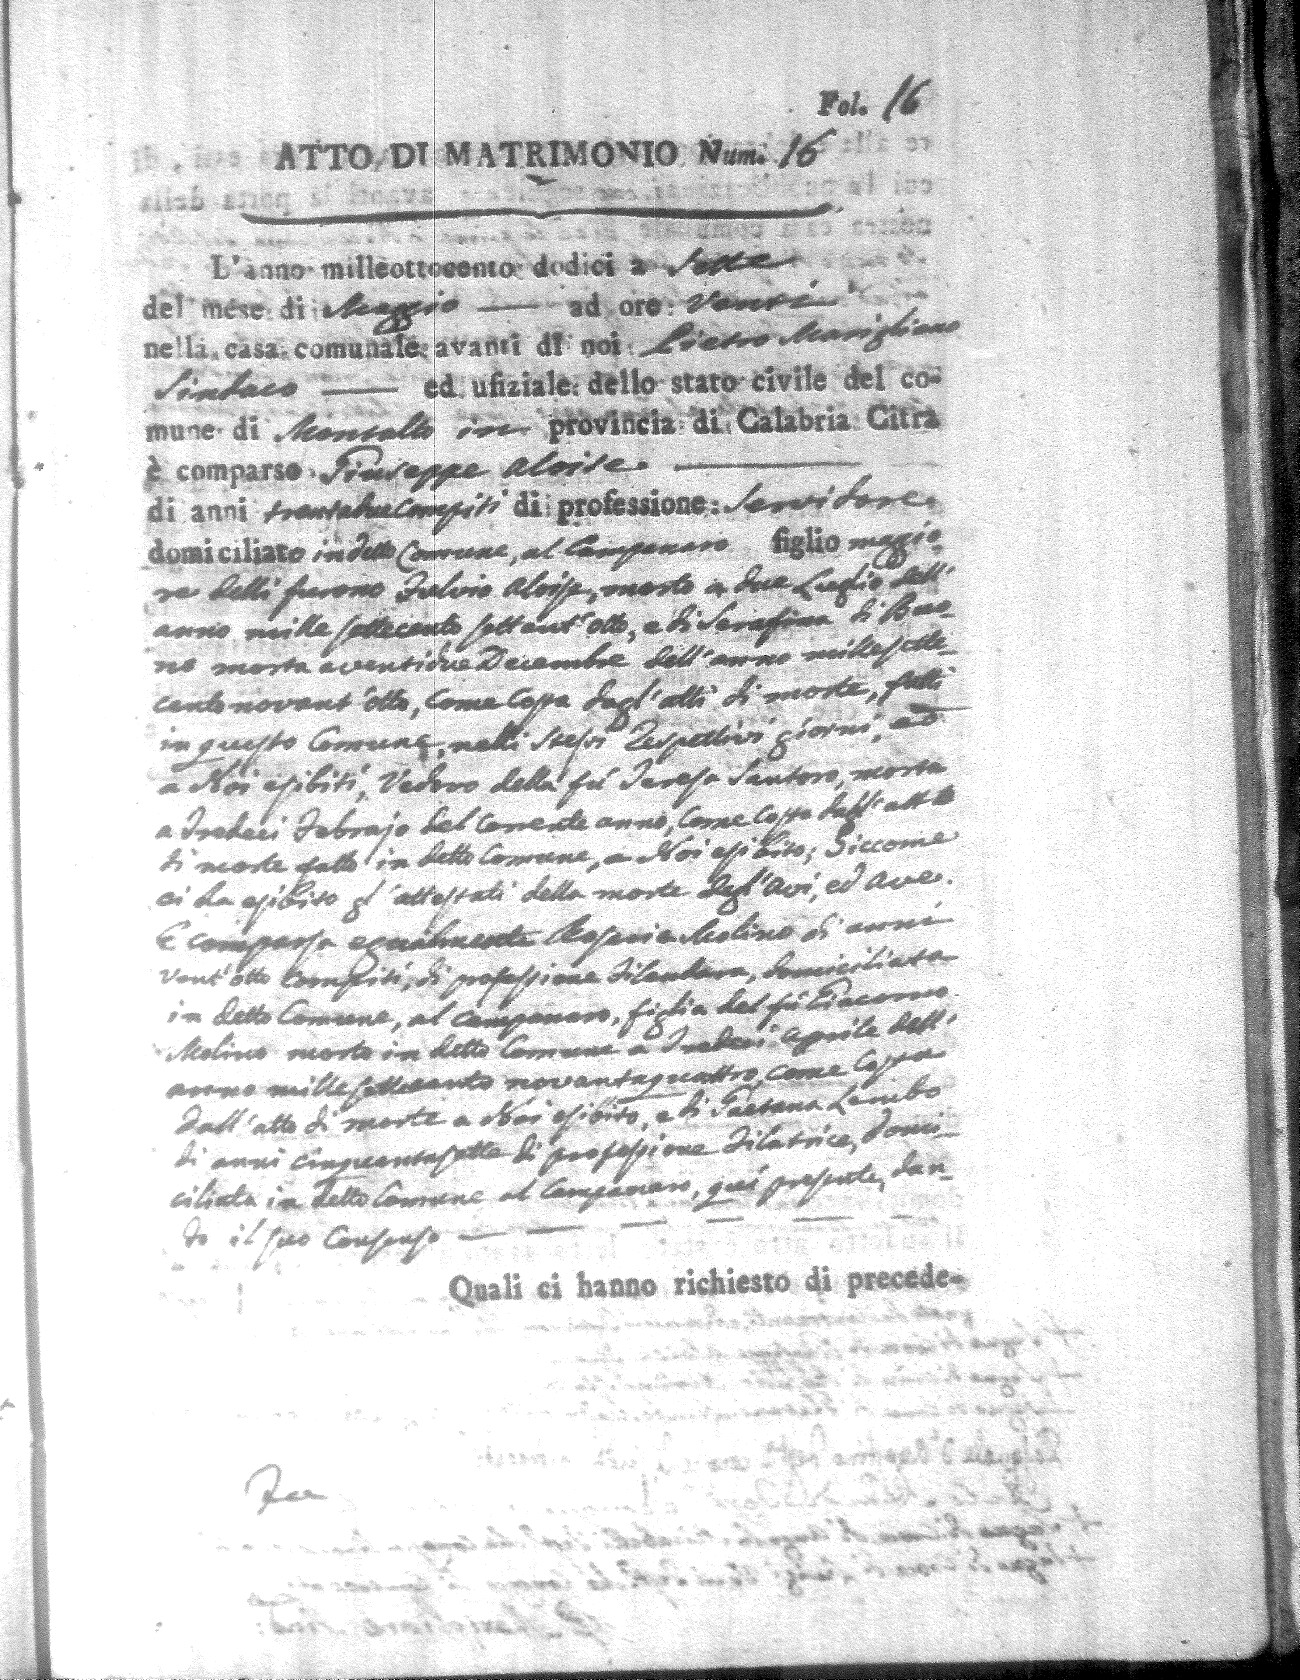 Fol. 16
ATTO DI MATRIMONIO Num. 16
L'anno milleottocento dodici a Sette
del mese di Maggio — ad ore Venti
nella casa comunale avanti di noi Pietro Marigliano
Sindaco — ed ufiziale dello stato civile del co-
mune di Montalto in provincia di Calabria Citra
è comparso Giuseppe Aloise —
di anni compiti di professione Servidore
domiciliato in detto Comune, al Campanaro figlio maggio-
re delli furono Fulvio Aloise, morto a due Luglio dell'
anno mille settecento settant'otto, e di Serafina di Buo-
no morta a ventidue Decembre dell'anno millesette-
centonovant'otto, come costa dagl'atti di morte, fatti
in questo Comune, nelli stessi respettivi giorni, ed
a Noi esibiti, Vedovo della fù Teresa Santoro, morta
a Tredeci Febrajo del corrente anno, come costa dall'atto
di morte fatto in detto Comune, a Noi esibito; Siccome
ci ha esibito gl'attestati della morte degl'avi, ed ave.
E comparsa egualmente Rosaria Molino di anni
vent'otto compiti, di professione Filandara, domiciliata
in detto Comune, al Campanaro, figlia del fù Giacomo
Molino morto in detto Comune a Tredeci Aprile dell'
anno millesettecento novantaquattro, come costa
dall'atto di morte a Noi esibito, e di Gaetana Lembo
di anni cinquantasette di professione Filatrice, domi-
ciliata in detto Comune al Campanaro, quì presente, dan-
do il suo Consenso —
Quali ci hanno richiesto di precede-